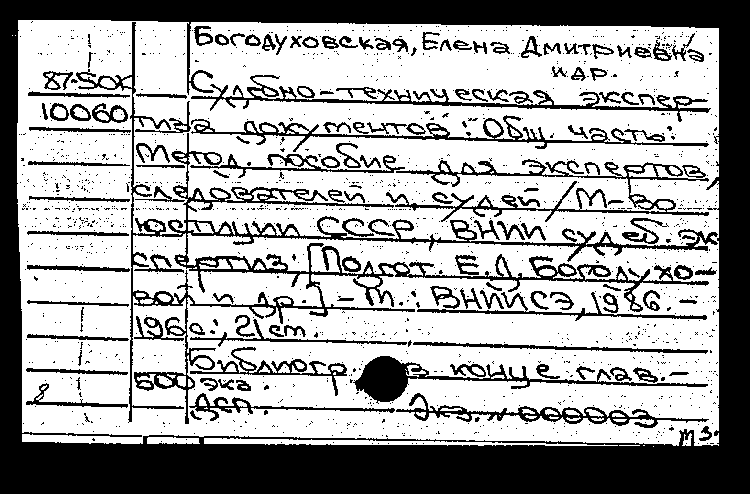 Богодуховская, Елена Дмитриевна
и др.
87-50К Судебно-техническая экспер-
10060 тиза документов: Общ. часть:
Метод. пособие для экспертов,
следователей и судей / М-во
юстиции СССР, ВНИИ судеб. эк
спертиз; [Подгот. Е.Д. Богодухо-
вой и др.]. - М.: ВНИИСЭ, 1986. -
196 с.; 21 см.
Библиогр. в конце глав. -
500 экз.
8 Дсп. Экз. № 000003
м 3.